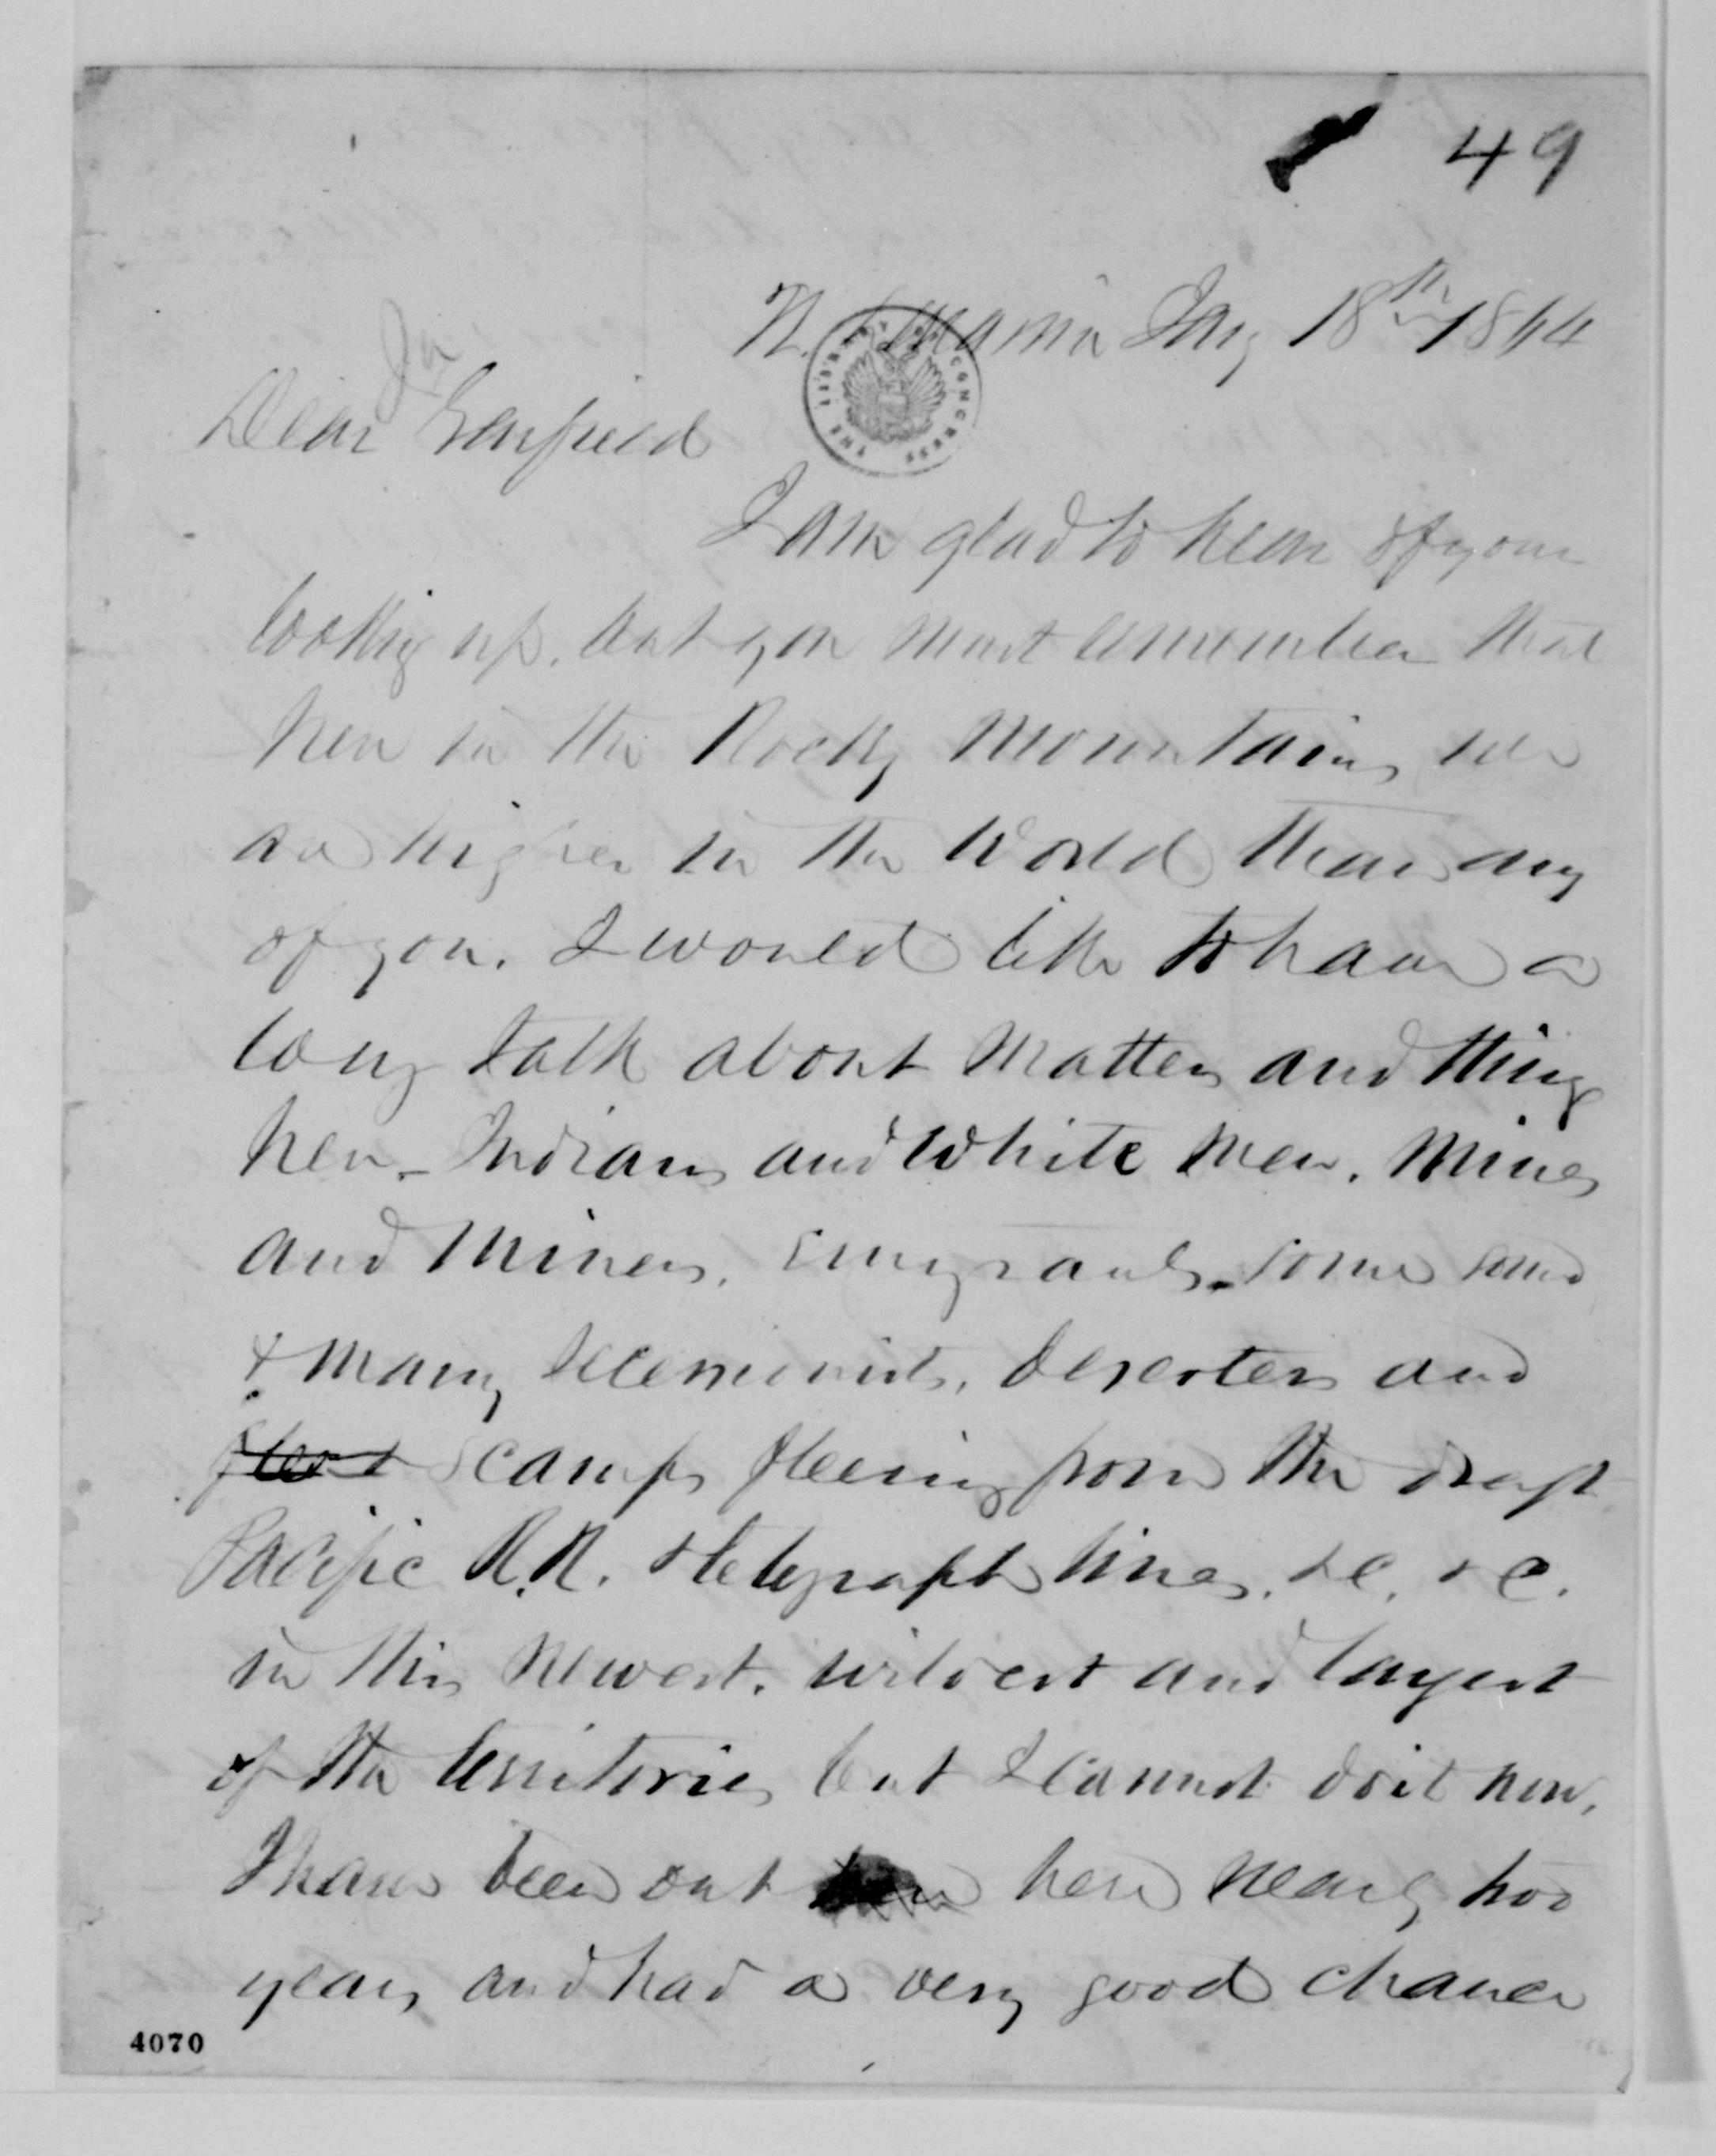 49
Jany 18th 1864
Dear Garfield
I am glad to hear of your
looking up, but you must remember that
here in the Rocky Mountains we
are higher in the World than any
of you. I would like to have a
long talk about Matters and things
here - Indians and White Men. Mines
and Miners. Emigrants - some good
& many Secessionists, Deserters and
scamps fleeing from the draft
Pacific R.R. & telegraph lines. &c. &c.
in this Newest. wildest and largest
of the territories but I cannot do it now.
I have been out here nearly two
years and had a very good chance
THE LIBRARY OF CONGRESS
4070